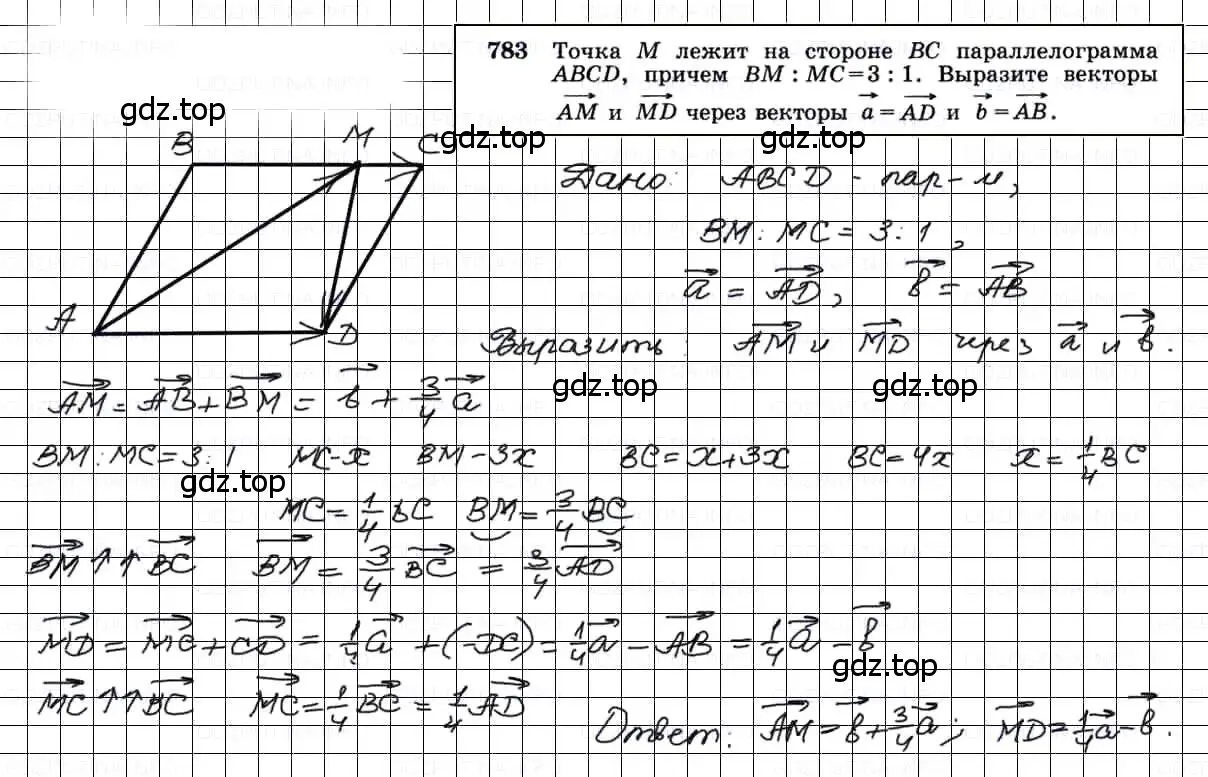 783 Точка M лежит на стороне BC параллелограмма
ABCD, причем BM : MC = 3 : 1. Выразите векторы
AM→ и MD→ через векторы a→ = AD→ и b→ = AB→.
gdz.top gdz.top gdz.top
B M C
Дано: ABCD - пар-м,
BM : MC = 3 : 1,
a→ = AD→, b→ = AB→
A D
Выразить: AM→ и MD→ через a→ и b→.
gdz.top gdz.top
AM→ = AB→ + BM→ = b→ + 3/4 a→
BM : MC = 3 : 1 MC - x BM - 3x BC = x + 3x BC = 4x x = 1/4 BC
gdz.top
MC = 1/4 BC BM = 3/4 BC
BM→ ↑↑ BC→ BM→ = 3/4 BC→ = 3/4 AD→
MD→ = MC→ + CD→ = 1/4 a→ + (-DC→) = 1/4 a→ - AB→ = 1/4 a→ - b→
gdz.top
MC→ ↑↑ BC→ MC→ = 1/4 BC→ = 1/4 AD→
Ответ: AM→ = b→ + 3/4 a→; MD→ = 1/4 a→ - b→.